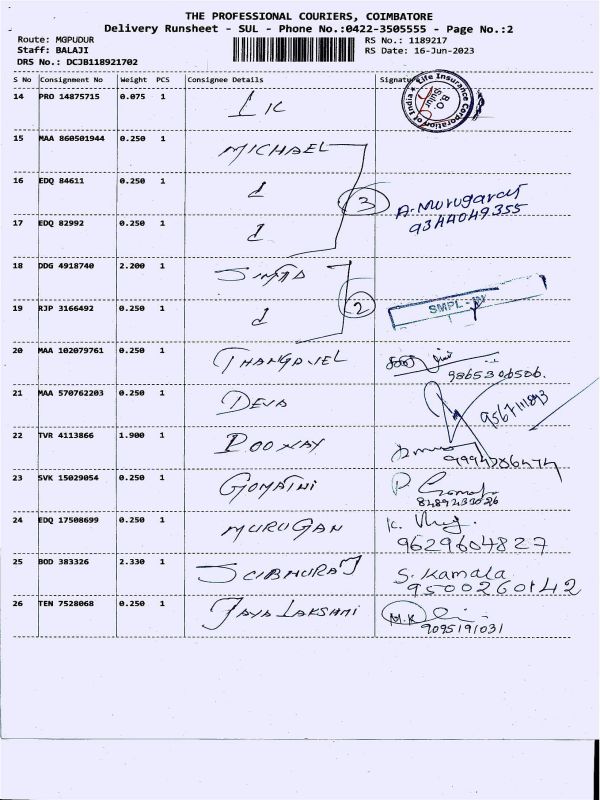 THE PROFESSIONAL COURIERS, COIMBATORE
Delivery Runsheet - SUL - Phone No.:0422-3505555 - Page No.:2
Route: MGPUDUR RS No.: 1189217
Staff: BALAJI RS Date: 16-Jun-2023
DRS No.: DCJB118921702
S No Consignment No Weight PCS Consignee Details Signature
Life Insurance Corporation of India B.O. Sulur
14 PRO 14875715 0.075 1 LIC
15 MAA 860501944 0.250 1 MICHAEL
16 EDQ 84611 0.250 1
3 A. Murugaraj
17 EDQ 82992 0.250 1 9344049355
18 DDG 4918740 2.200 1
19 RJP 3166492 0.250 1 2 SMPL - IN
20 MAA 102079761 0.250 1 THANGAVEL
9865306506.
21 MAA 570762203 0.250 1 DEVA
22 TVR 4113866 1.900 1
23 SVK 15029054 0.250 1 GOMATHI P.
8489433026
24 EDQ 17508699 0.250 1 MURUGAN K.
9629604827
25 BOD 383326 2.330 1 S. Kamala
9500260142
26 TEN 7528068 0.250 1 JAYA LAKSHMI M.K
9095191031